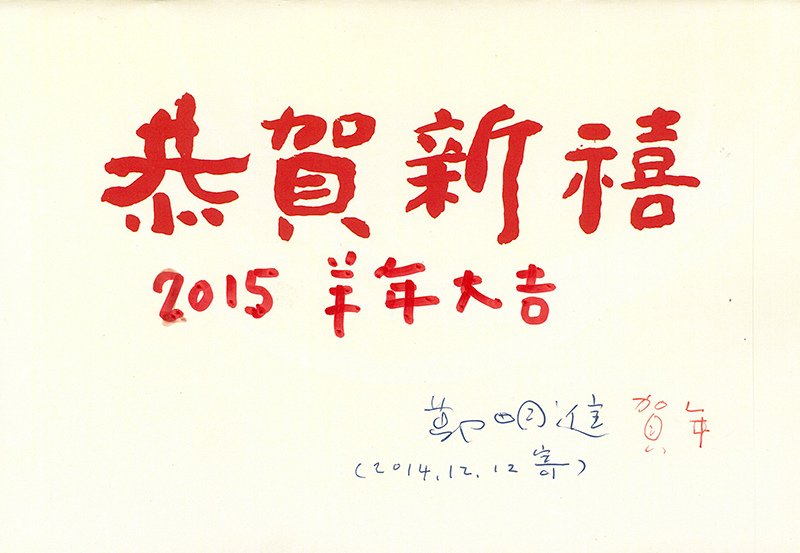 恭賀新禧
2015 羊年大吉
鄭明進 賀年
(2014.12.12 寄)